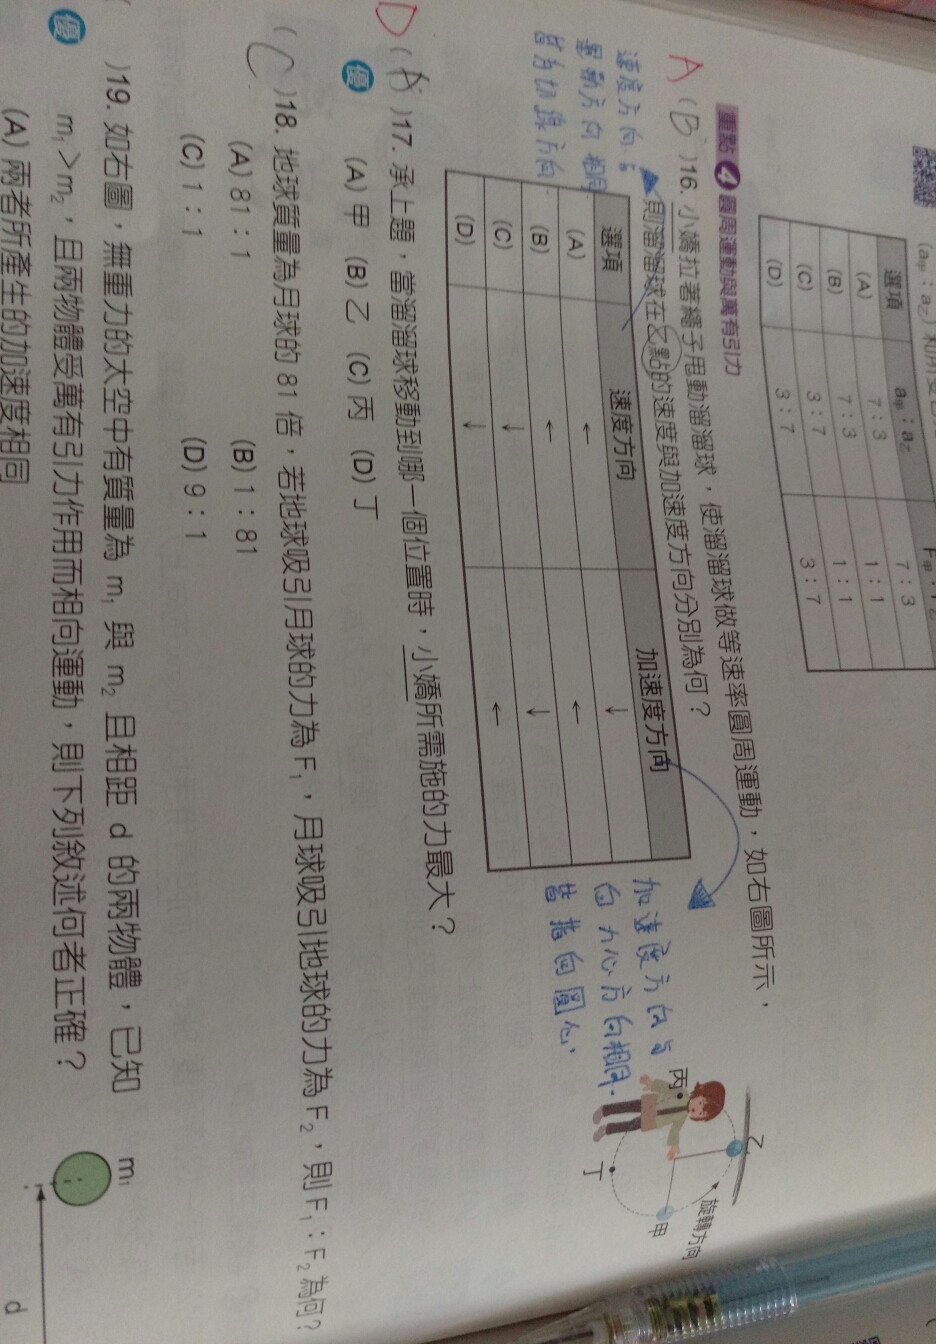 (a甲：a乙)
選項 a甲：a乙 F甲：F乙
(A) 7：3 7：3
(B) 7：3 1：1
(C) 3：7 1：1
(D) 3：7 3：7
重點 4 圓周運動與萬有引力
A
(B)16. 小嬌拉著繩子甩動溜溜球，使溜溜球做等速率圓周運動，如右圖所示，
則溜溜球在乙點的速度與加速度方向分別為何？
選項 速度方向 加速度方向
(A) ← ↓
(B) ← ←
(C) ↓ ↓
(D) ↓ ←
速度方向與
運動方向相同
皆為切線方向
加速度方向與
向心力方向相同.
皆指向圓心.
乙
旋轉方向
甲
丙
丁
D
(A)17. 承上題，當溜溜球移動到哪一個位置時，小嬌所需施的力最大？
優 (A) 甲 (B) 乙 (C) 丙 (D) 丁
(C)18. 地球質量為月球的 81 倍，若地球吸引月球的力為 F₁，月球吸引地球的力為 F₂，則 F₁：F₂ 為何？
(A) 81：1 (B) 1：81
(C) 1：1 (D) 9：1
)19. 如右圖，無重力的太空中有質量為 m₁ 與 m₂ 且相距 d 的兩物體，已知
優 m₁＞m₂，且兩物體受萬有引力作用而相向運動，則下列敘述何者正確？
(A) 兩者所產生的加速度相同
m₁
d